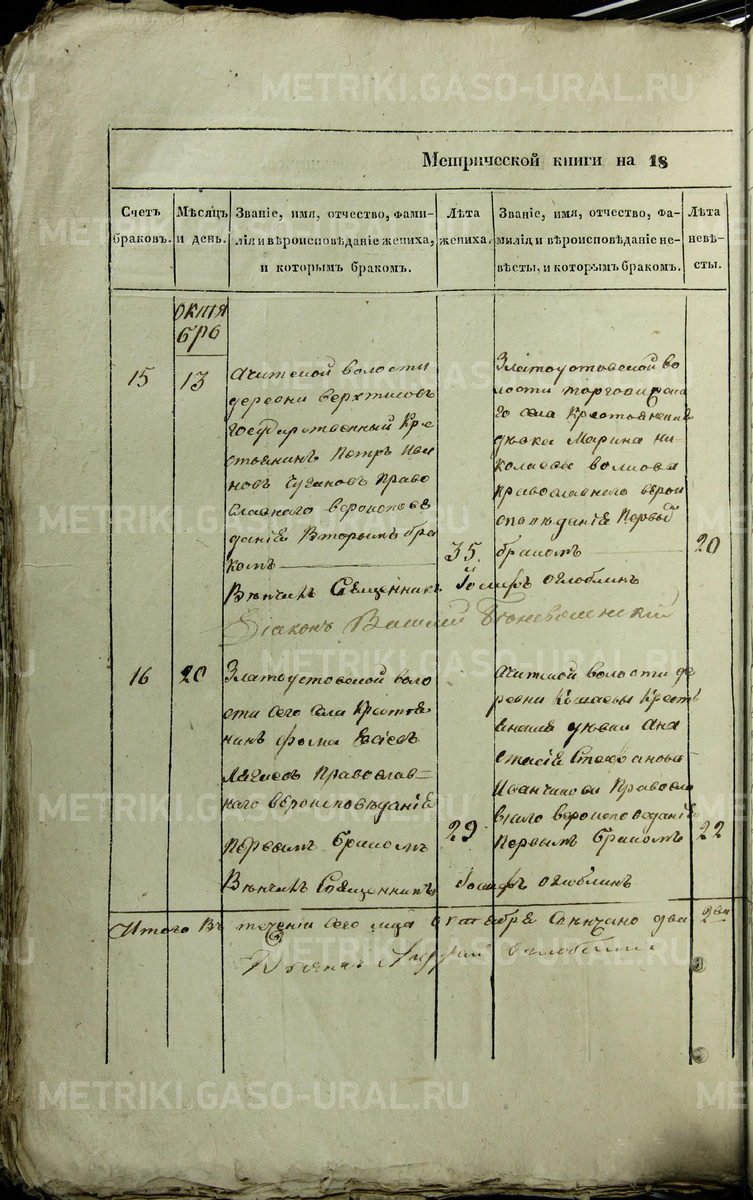 Метрической книги на 18
Счетъ браковъ.
Мѣсяцъ и день.
Званіе, имя, отчество, фами-
лія и вѣроисповѣданіе жениха,
и которымъ бракомъ.
Лѣта жениха.
Званіе, имя, отчество, фа-
милія и вѣроисповѣданіе не-
вѣсты, и которымъ бракомъ.
Лѣта невѣ-
сты.
октя
брь
15
13
Ачитской волости
деревни Верхтисовъ
государственный кре
стьянинъ Петръ Ива
новъ Право
славнаго вероисповѣ
данія Вторымъ бра
комъ
35.
Златоустовской во
лости торговижска
го села крестьянская
дѣвка Марина Ни
колаева волкова
православнаго верои
споведанія Первый
бракомъ
20
Вѣнчалъ Священникъ Іосифъ Оглоблинъ
Діаконъ Василий
16
20
Златоустовской воло
сти сего села Крестья
нинъ Фома Евсіевъ
Православ-
наго вероисповѣданія
первымъ бракомъ
29
Ачитской волости де
ревни Крестъ
янская дѣвка Ана
стасія Стефанова
Иванчикова Правосла
внаго вероисповеданія
Первымъ бракомъ
22
Вѣнчалъ Священникъ Іосифъ Оглоблинъ
Итого въ теченіи сего м-ца октебрѣ венчано два
2ва
METRIKI.GASO-URAL.RU